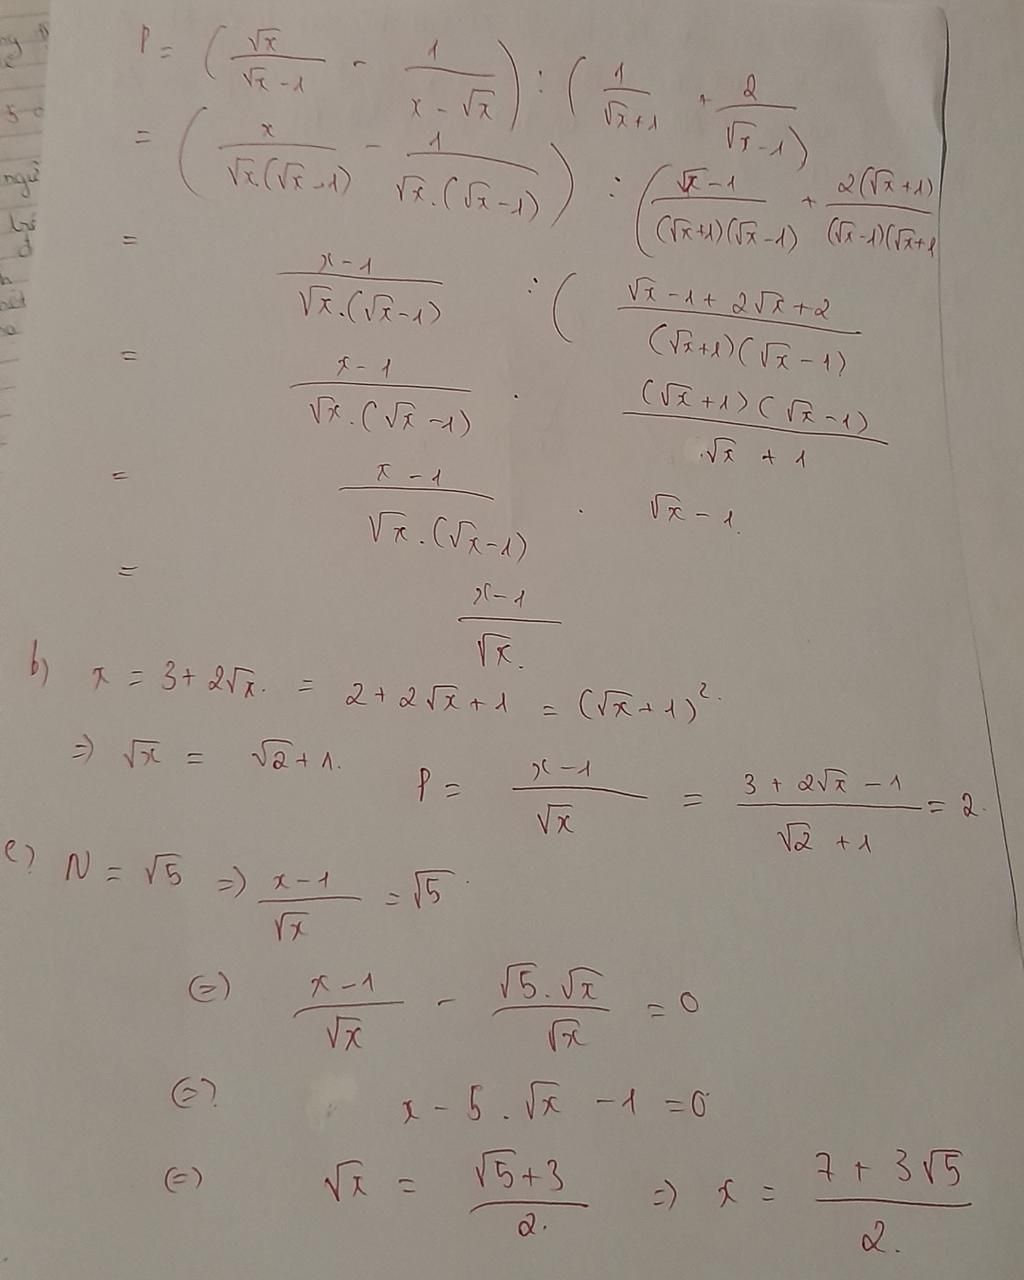 P = (√x/(√x-1) - 1/(x-√x)) : (1/(√x+1) + 2/(√x-1))
= (x/(√x(√x-1)) - 1/(√x.(√x-1))) : ((√x-1)/((√x+1)(√x-1)) + 2(√x+1)/((√x-1)(√x+1
= (x-1)/(√x.(√x-1)) : ( (√x-1+2√x+2)/((√x+1)(√x-1))
= (x-1)/(√x.(√x-1)) . ((√x+1)(√x-1))/(√x+1)
= (x-1)/(√x.(√x-1)) . √x-1.
= (x-1)/√x.
b) x = 3+2√x. = 2+2√x+1 = (√x+1)².
=) √x = √2+1. P = (x-1)/√x = (3+2√x-1)/(√2+1) = 2.
c) N = √5 =) (x-1)/√x = √5.
(=) (x-1)/√x - (√5.√x)/√x = 0
(=) x - 5.√x - 1 = 0
(=) √x = (√5+3)/2. =) x = (7+3√5)/2.